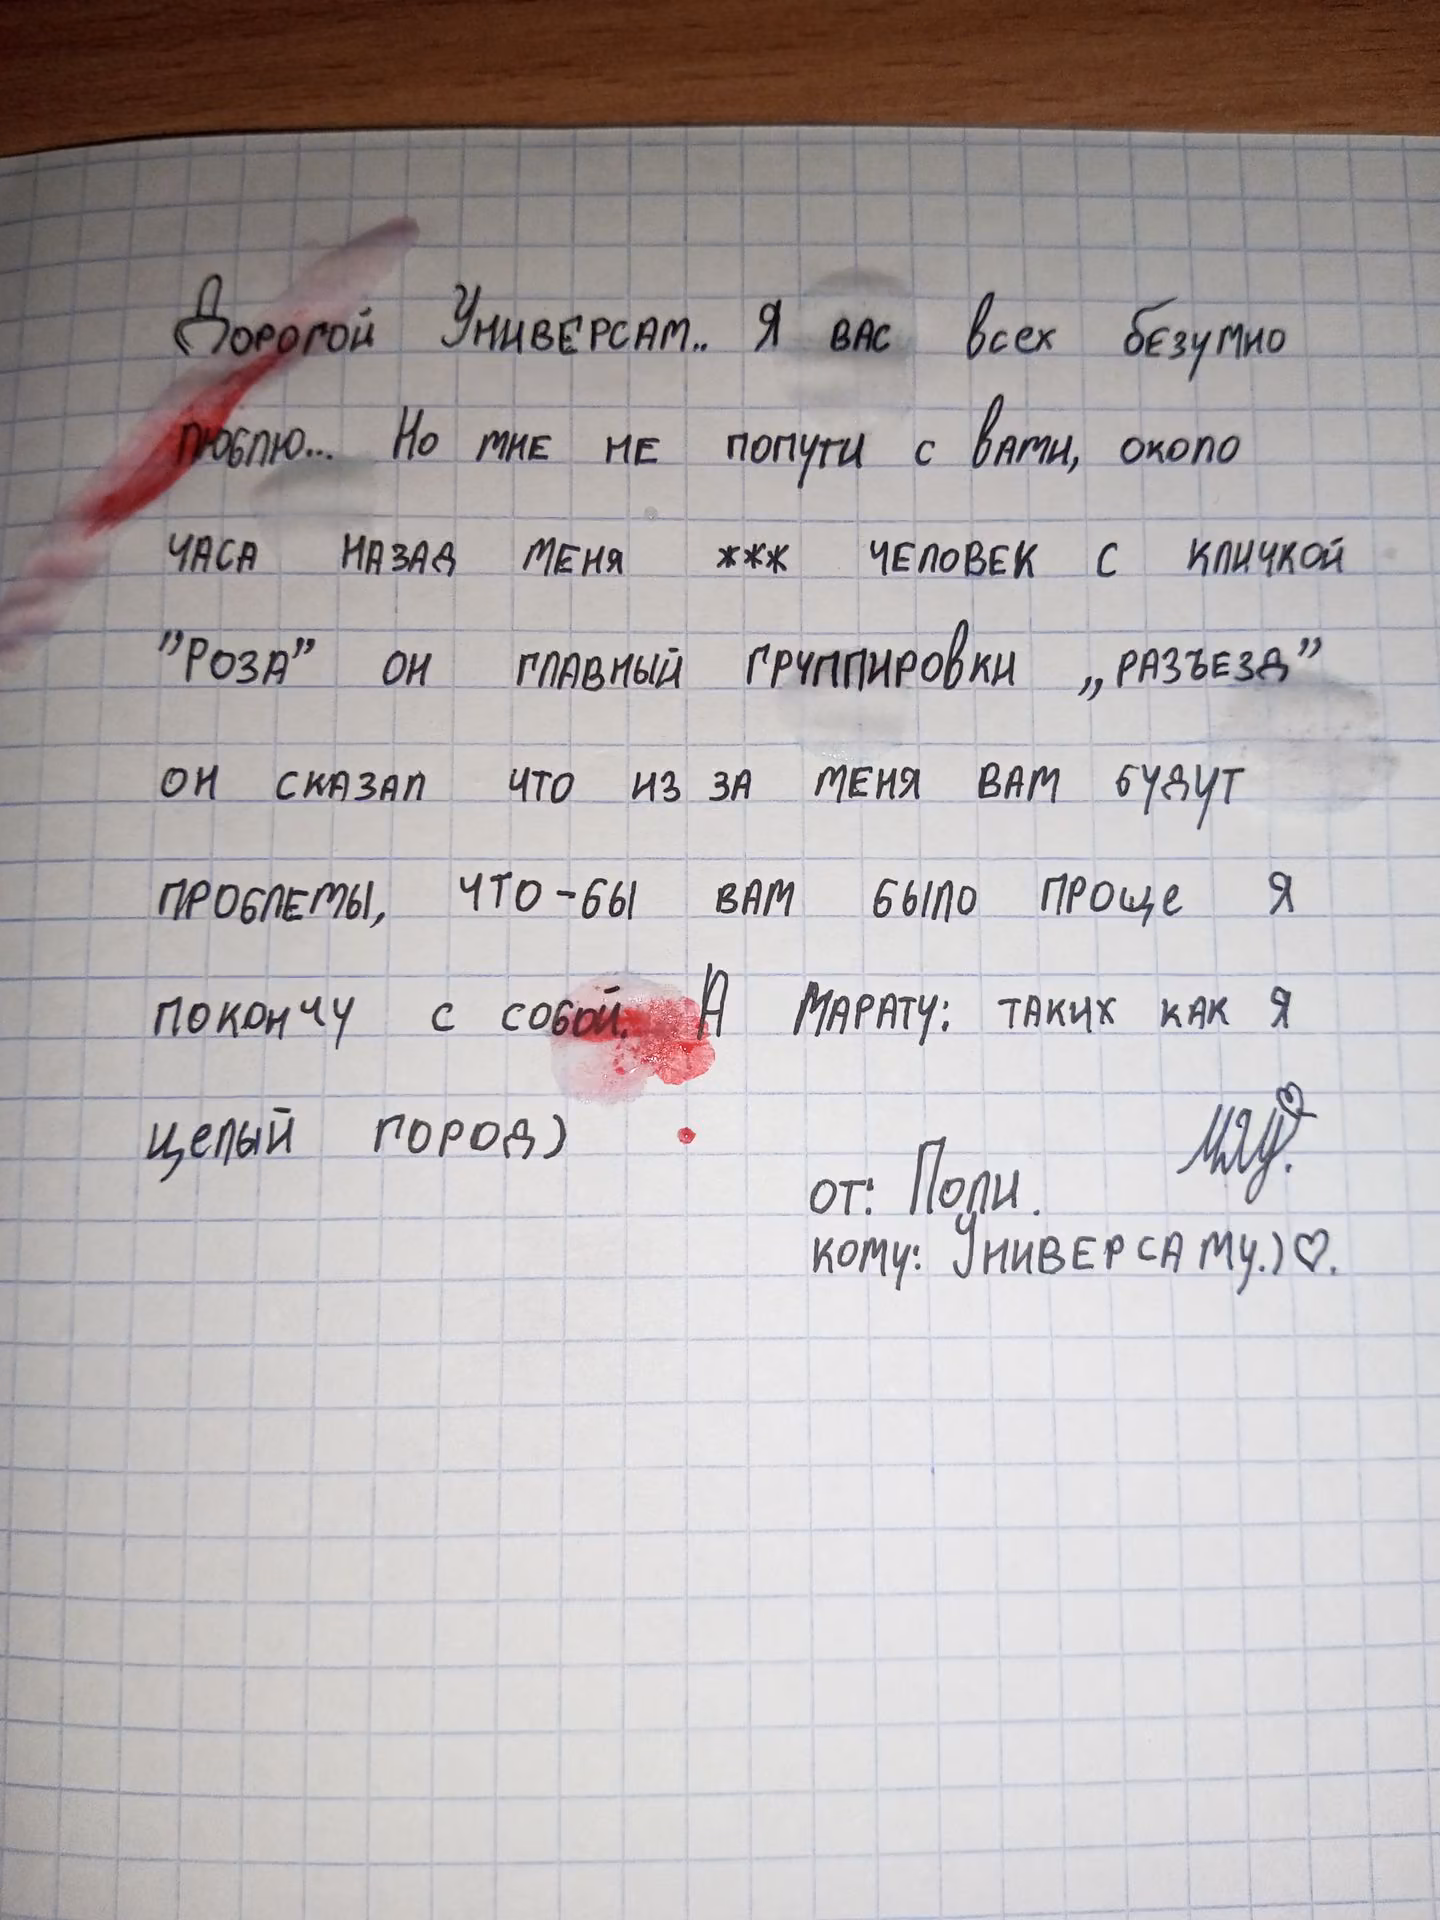 Дорогой Универсам.. Я вас всех безумно
люблю... Но мне не попути с вами, около
часа назад меня жжж человек с кличкой
"Роза" он главный группировки „Разъезд”
он сказал что из за меня вам будут
проблемы, что-бы вам было проще я
покончу с собой. А Марату: таких как я
целый город)
от: Поли.
кому: Универсаму.)♡.